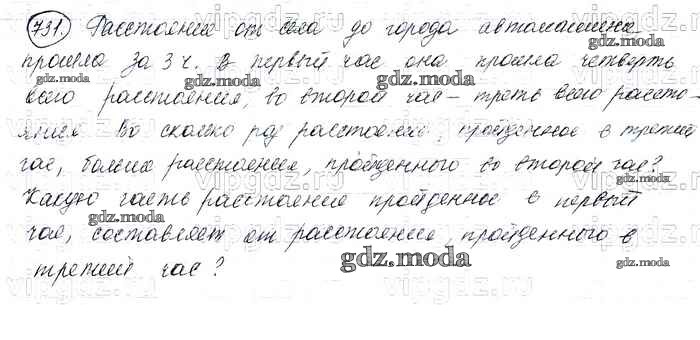 731. Расстояние от села до города автомашина
прошла за 3 ч. В первый час она прошла четверть
всего расстояния, во второй час – треть всего рассто-
яния. Во сколько раз расстояние, пройденное в третий
час, больше расстояния, пройденного во второй час?
Какую часть расстояние пройденное в первый
час, составляет от расстояния, пройденного в
третий час?
gdz.moda
gdz.moda
gdz.moda
gdz.moda
gdz.moda
gdz.moda
gdz.moda
gdz.moda
gdz.moda
vipgdz.ru
vipgdz.ru
vipgdz.ru
vipgdz.ru